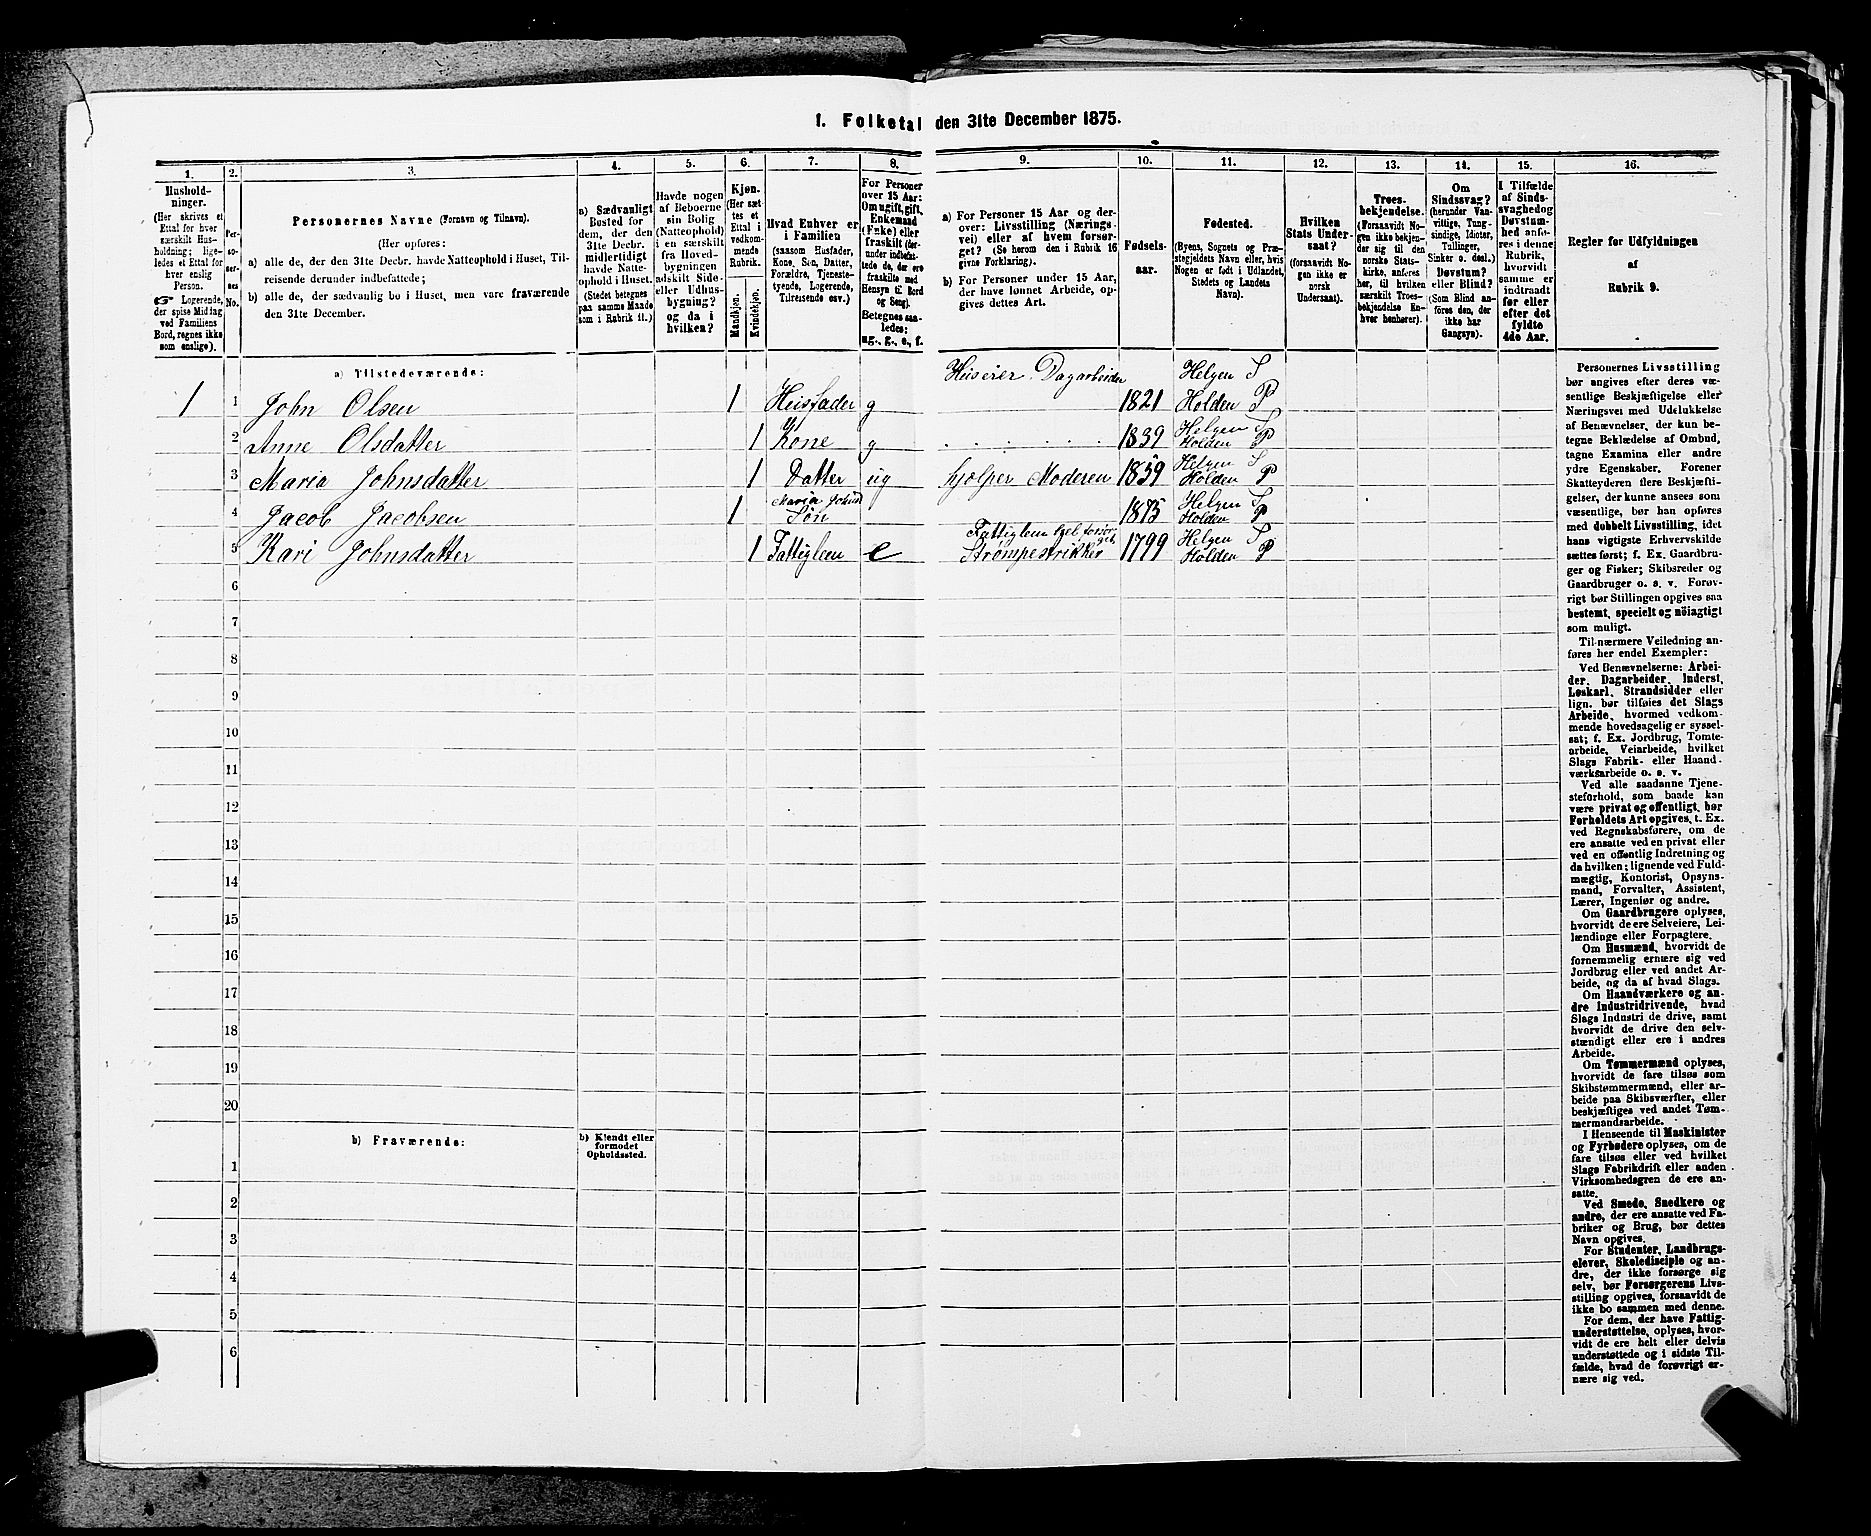 1. Folketal den 31te December 1875.
1.
Hushold-
ninger.
(Her skrives et
Ettal for hver
særskilt Hus-
holdning; lige-
ledes et Ettal for
hver enslig
Person.
☞ Logerende,
der spise Middag
ved Familiens
Bord, regnes ikke
som enslige).
2.
Per-
soner-
nes
No.
3.
Personernes Navne (Fornavn og Tilnavn).
(Her opføres:
a) alle de, der den 31te Decbr. havde Natteophold i Huset, Til-
reisende derunder indbefattede;
b) alle de, der sædvanlig bo i Huset, men vare fraværende
den 31te December.
4.
a) Sædvanligt
Bosted for
dem, der den
31te Decbr.
midlertidigt
havde Natte-
ophold i Huset.
(Stedet betegnes
paa samme Maade
som i Rubrik 11.)
5.
Havde nogen
af Beboerne
sin Bolig
(Natteophold)
i en særskilt
fra Hoved-
bygningen
adskilt Side-
eller Udhus-
bygning?
og da i
hvilken?
6.
Kjøn.
(Her sæt-
tes et
Ettal i
vedkom-
mende
Rubrik.
Mandkjøn.
Kvindekjøn.
7.
Hvad Enhver er
i Familien
(saasom Husfader,
Kone, Søn, Datter,
Forældre, Tjeneste-
tyende, Logerende,
Tilreisende osv.)
8.
For Personer
over 15 Aar:
Om ugift, gift,
Enkemand
(Enke) eller
fraskilt (der-
under indbefat-
tede de, der ere
fraskilte med
Hensyn til Bord
og Seng).
Betegnes saa-
ledes:
ug., g., e., f.
9.
a) For Personer 15 Aar og der-
over: Livsstilling (Nærings-
vei) eller af hvem forsør-
get? (Se herom den i Rubrik 16
givne Forklaring).
b) For Personer under 15 Aar,
der have lønnet Arbeide, op-
gives dettes Art.
10.
Fødsels-
aar.
11.
Fødested.
(Byens, Sognets og Præ-
stegjeldets Navn eller, hvis
Nogen er født i Udlandet,
Stedets og Landets
Navn).
12.
Hvilken
Stats Under-
saat?
(forsaavidt No-
gen ikke er
norsk
Undersaat).
13.
Troes-
bekjendelse.
(Forsaavidt No-
gen ikke bekjen-
der sig til den
norske Stats-
kirke, anføres
her, til hvilken
særskilt Troes-
bekjendelse En-
hver henhører).
14.
Om
Sindssvag?
(herunder Van-
vittige, Tung-
sindige, Idioter,
Tullinger,
Sinker o. desl.)
Døvstum?
eller Blind?
(Som Blind an-
føres den, der
ikke har
Gangsyn).
15.
I Tilfælde
af Sinds-
svaghed og
Døvstum-
hed anfø-
res i denne
Rubrik,
hvorvidt
samme er
indtraadt
før eller
efter det
fyldte
4de Aar.
16.
Regler for Udfyldningen
af
Rubrik 9.
a) Tilstedeværende:
1 1 John Olsen 1 Husfader g Huseier. Dagarbeider 1821 Helgen S Holden P
2 Anne Olsdatter 1 Kone g . . . . . . 1839 Helgen S Holden P
3 Maria Johnsdatter 1 Datter ug hjælper Moderen 1859 Helgen S Holden P
4 Jacob Jacobsen 1 Maria Johnsd Søn 1875 Helgen S Holden P
5 Kari Johnsdatter 1 Fattiglem e Fattiglem Strømpestrikker 1799 Helgen S Holden P
6
7
8
9
10
11
12
13
14
15
16
17
18
19
20
b) Fraværende:
b) Kjendt eller
formodet
Opholdssted.
1
2
3
4
5
6
Personernes Livsstilling
bør angives efter deres væ-
sentlige Beskjæftigelse eller
Næringsvei med Udelukkelse
af Benævnelser, der kun be-
tegne Beklædelse af Ombud,
tagne Examina eller andre
ydre Egenskaber. Forener
Skatteyderen flere Beskjæfti-
gelser, der kunne ansees som
væsentlige, bør han opføres
med dobbelt Livsstilling, idet
hans vigtigste Erhvervskilde
sættes først; f. Ex. Gaardbru-
ger og Fisker; Skibsreder og
Gaardbruger o. s. v. Forøv-
rigt bør Stillingen opgives saa
bestemt, specielt og nöiagtigt
som muligt.
Til nærmere Veiledning an-
føres her endel Exempler:
Ved Benævnelserne: Arbei-
der, Dagarbeider, Inderst,
Løskarl, Strandsidder eller
lign. bør tilføies det Slags
Arbeide, hvormed vedkom-
mende hovedsagelig er syssel-
sat; f. Ex. Jordbrug, Tomte-
arbeide, Veiarbeide, hvilket
Slags Fabrik- eller Haand-
værksarbeide o. s. v.
Ved alle saadanne Tjene-
steforhold, som baade kan
være privat og offentligt, bør
Forholdets Art opgives, t. Ex.
ved Regnskabsførere, om de
ere ansatte ved en privat eller
ved en offentlig Indretning og
da hvilken; lignende ved Fuld-
mægtig, Kontorist, Opsyns-
mand, Forvalter, Assistent,
Lærer, Ingeniør og andre.
Om Gaardbrugere oplyses,
hvorvidt de ere Selveiere, Lei-
lændinge eller Forpagtere.
Om Husmænd, hvorvidt de
fornemmelig ernære sig ved
Jordbrug eller ved andet Ar-
beide, og da af hvad Slags.
Om Haandværkere og an-
dre Industridrivende, hvad
Slags Industri de drive, samt
hvorvidt de drive den selv-
stændigt eller ere i andres
Arbeide.
Om Tømmermænd oplyses,
hvorvidt de fare tilsøs som
Skibstømmermænd, eller ar-
beide paa Skibsværfter, eller
beskjæftiges ved andet Tøm-
mermandsarbeide.
I Henseende til Maskinister
og Fyrbødere oplyses, om de
fare tilsøs eller ved hvilket
Slags Fabrikdrift eller anden
Virksomhedsgren de ere an-
satte.
Ved Smede, Snedkere og
andre, der ere ansatte ved Fa-
briker og Brug, bør dettes
Navn opgives.
For Studenter, Landbrugs-
elever, Skoledisciple og an-
dre, der ikke forsørge sig
selv, bør Forsørgerens Livs-
stilling opgives, forsaavidt de
ikke bo sammen med denne.
For dem, der have Fattig-
understøttelse, oplyses, hvor-
vidt de ere helt eller delvis
understøttede og i sidste Til-
fælde, hvad de forøvrigt er-
nære sig ved.